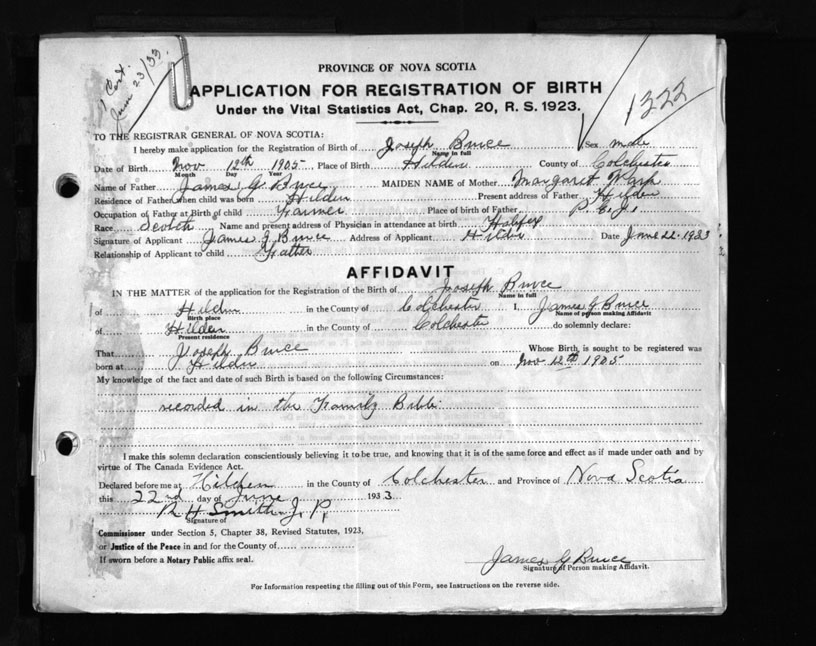 1 Cert.
June 23/33.
PROVINCE OF NOVA SCOTIA
APPLICATION FOR REGISTRATION OF BIRTH
Under the Vital Statistics Act, Chap. 20, R. S. 1923.
1322
TO THE REGISTRAR GENERAL OF NOVA SCOTIA:
I hereby make application for the Registration of Birth of Joseph Bruce Sex male
Name in full
Date of Birth Nov 12th 1905 Place of Birth Hilden County of Colchester
Month Day Year
Name of Father James G Bruce MAIDEN NAME of Mother Margaret
Residence of Father when child was born Hilden Present address of Father Hilden
Occupation of Father at Birth of child Farmer Place of birth of Father P.E.I.
Race Scotch Name and present address of Physician in attendance at birth Halifax
Signature of Applicant James G Bruce Address of Applicant Hilden Date June 22. 1933
Relationship of Applicant to child Father
AFFIDAVIT
IN THE MATTER of the application for the Registration of the Birth of Joseph Bruce
Name in full
of Hilden in the County of Colchester I, James G Bruce
Birth place Name of person making Affidavit
of Hilden in the County of Colchester do solemnly declare:
Present residence
That Joseph Bruce Whose Birth is sought to be registered was
born at Hilden on Nov 12th 1905
My knowledge of the fact and date of such Birth is based on the following Circumstances:
recorded in the Family Bible
I make this solemn declaration conscientiously believing it to be true, and knowing that it is of the same force and effect as if made under oath and by
virtue of The Canada Evidence Act.
Declared before me at Hilden in the County of Colchester and Province of Nova Scotia
this 22nd day of June 1933
R H Smith J. P.
Signature of
Commissioner under Section 5, Chapter 38, Revised Statutes, 1923,
or Justice of the Peace in and for the County of
If sworn before a Notary Public affix seal.
James G Bruce
Signature of Person making Affidavit.
For Information respecting the filling out of this Form, see Instructions on the reverse side.